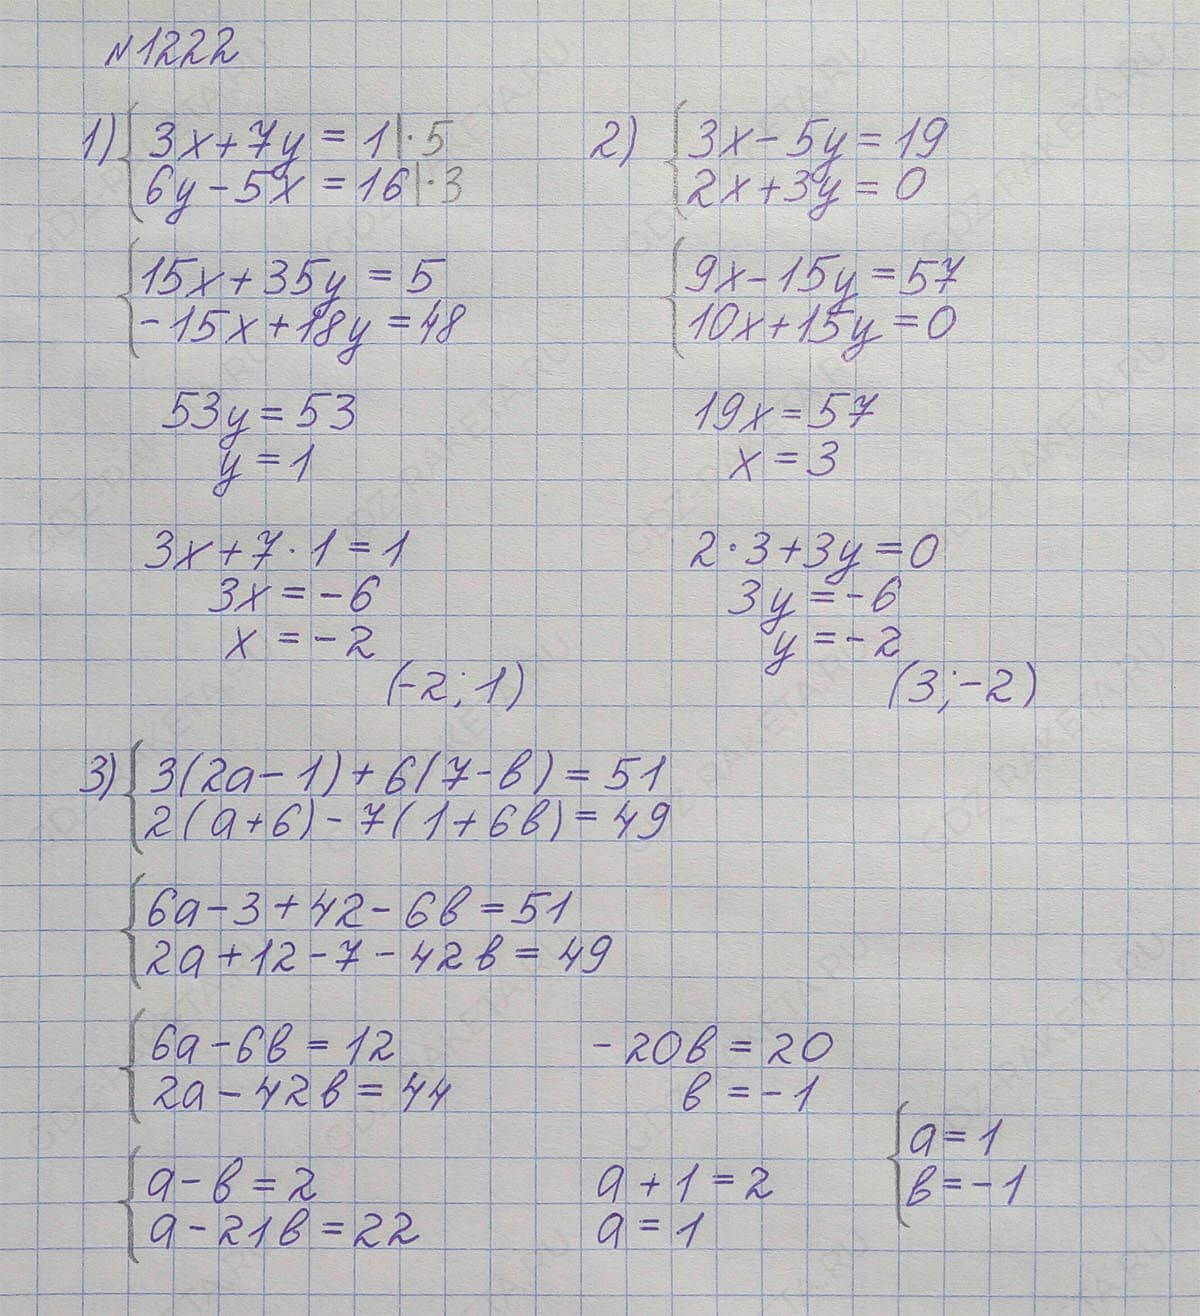 №1222
1) { 3x + 7y = 1 | · 5
6y - 5x = 16 | · 3
{ 15x + 35y = 5
-15x + 18y = 48
53y = 53
y = 1
3x + 7 · 1 = 1
3x = -6
x = -2
(-2; 1)
2) { 3x - 5y = 19
2x + 3y = 0
{ 9x - 15y = 57
10x + 15y = 0
19x = 57
x = 3
2 · 3 + 3y = 0
3y = -6
y = -2
(3; -2)
3) { 3(2a - 1) + 6(7 - в) = 51
2(a + 6) - 7(1 + 6в) = 49
{ 6a - 3 + 42 - 6в = 51
2a + 12 - 7 - 42в = 49
{ 6a - 6в = 12
2a - 42в = 44
{ a - в = 2
a - 21в = 22
-20в = 20
в = -1
a + 1 = 2
a = 1
{ a = 1
в = -1
GDZ-RAKETA.RU